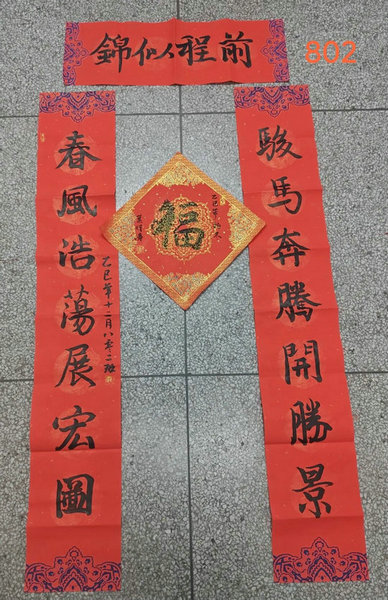 前程似錦
802
駿馬奔騰開勝景
春風浩蕩展宏圖
乙巳年十二月八零二班
福
乙巳年